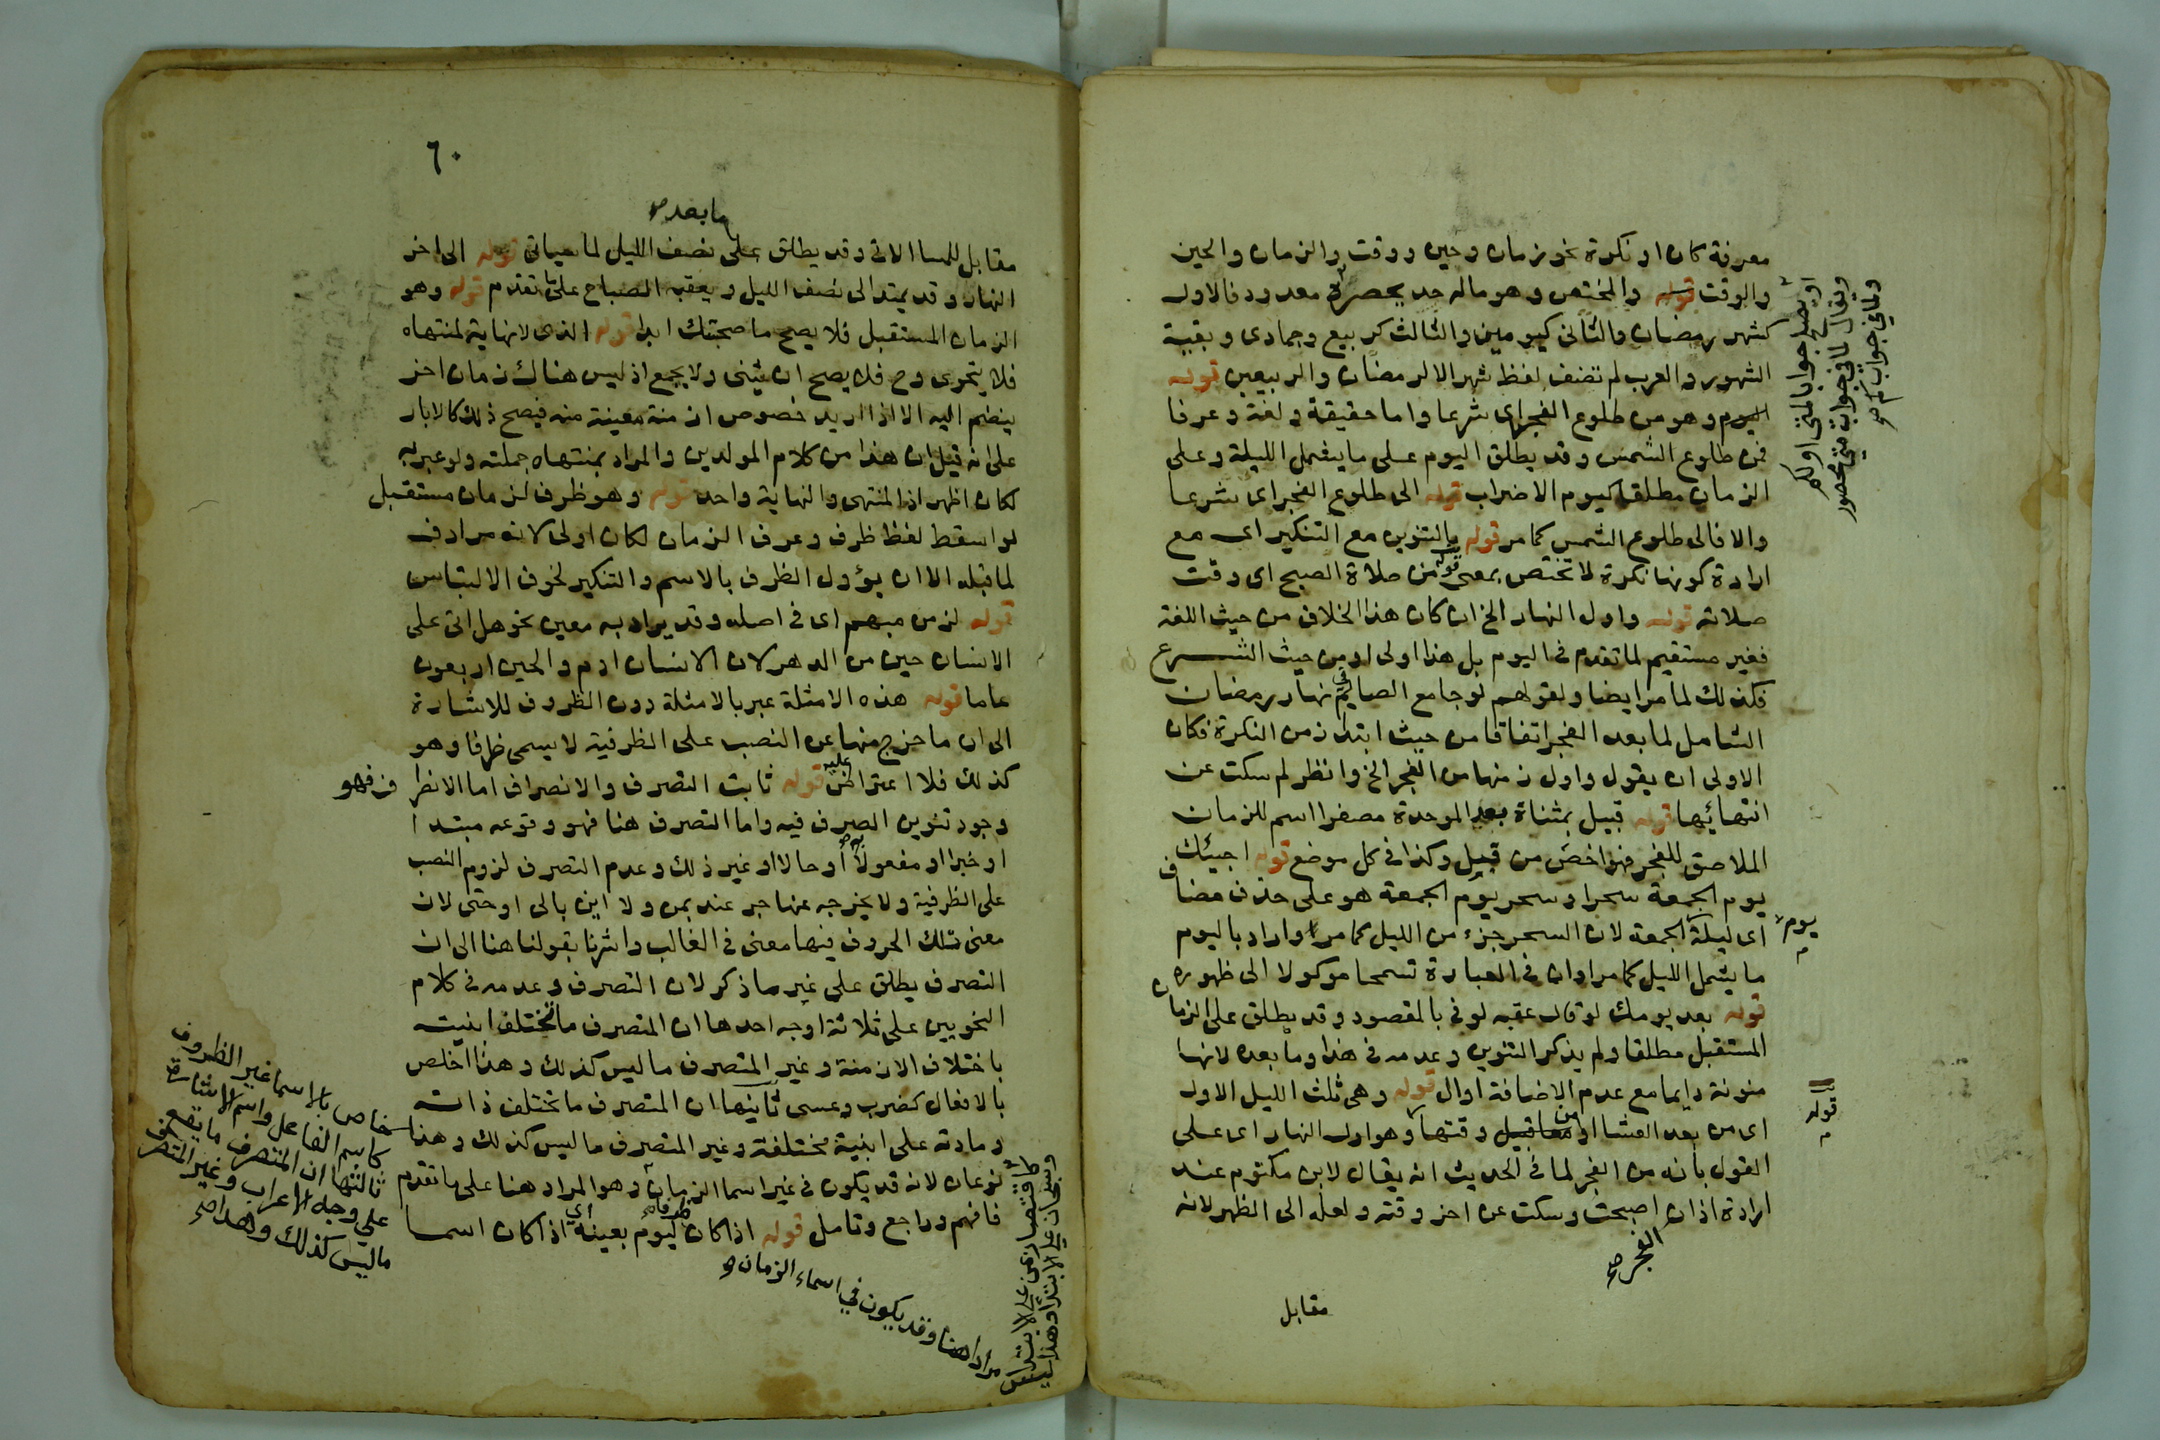 معرفة كان او نكرة نحو زمان وحين ووقت والزمان والحين
والوقت قوله والمختص وهو ماله حد يحصره معدود فالاول
كشهر رمضان والثاني كيومين والثالث كربيع وجمادى وبقية
الشهور والعرب لم تضف لفظ شهر الا لرمضان والربيعين قوله
اليوم وهو من طلوع الفجر اى شرعا واما حقيقة ولغة وعرفا
فمن طلوع الشمس وقد يطلق اليوم على ما يشمل الليلة وعلى
الزمان مطلقا كيوم الاضراب قوله الى طلوع الفجر اى شرعا
والا فالى طلوع الشمس كما مر قوله بالتنوين مع التنكير اى مع
ارادة كونها نكرة لا تختص بمعنى قوله من صلاة الصبح اى وقت
صلاته قوله واول النهار الخ ان كان هذا الخلاف من حيث اللغة
فغير مستقيم لما تقدم فى اليوم بل هذا اولى او من حيث الشرع
فكذلك لما مر ايضا ولقولهم لو جامع الصائم فى نهار رمضان
الشامل لما بعد الفجر اتفاقا من حيث ابتدا زمن النكرة فكان
الاولى ان يقول واول زمنها من الفجر الخ وانظر لم سكت عن
انتهائها قوله قبيل بمثناة بعد الموحدة مصغرا اسم للزمان
الملاصق للفجر فهو اخص من قبل وكذا فى كل موضع قوله اجيئك
يوم الجمعة سحرا وسحر يوم الجمعة هو على حذف مضاف
اى ليلة الجمعة لان السحر جزء من الليل كما مر او اراد باليوم
ما يشمل الليل كما مر او ان فى العبارة تسمحا موكولا الى ظهوره
قوله بعد يومك لو قال عقبه لوفى بالمقصود وقد يطلق على الزمان
المستقبل مطلقا ولم يذكر التنوين وعدمه فى هذا وما بعده لانها
منونة دايما مع عدم الاضافة اوال قوله وهى ثلث الليل الاول
اى من بعد العشا او من قبيل وقتها وهو اول النهار اى على
القول بانه من الفجر لما فى الحديث انه يقال لابن مكتوم عند
ارادة اذان اصبحت وسكت عن اخر وقته ولعله الى الظهر لانه
الفجر صح
مقابل
او يصلح جوابا لمتى او لكم
ويقال لما فى جواب متى محصور
ولما فى جواب كم صح
يوم
قوله
٦٠
ما بعد صح
مقابل للمسا الاتى وقد يطلق على نصف الليل لما سياتى قوله الى اخر
النهار وقد يمتد الى نصف الليل ويعقبه الصباح على ما تقدم قوله وهو
الزمان المستقبل فلا يصح ما صحبتك ابدا قوله الذى لا نهاية لمنتهاه
فلا يتجزى وح فلا يصح ان يثنى ولا يجمع اذ ليس هناك زمان اخر
ينضم اليه الا اذا اريد خصوص ازمنة معينة منه فيصح ذلك كالاباد
على انه قيل ان هذا من كلام المولدين والمراد بمنتهاه جملته ولو عبر به
لكان اظهر اذ المنتهى والنهاية واحد قوله وهو ظرف لزمان مستقبل
لو اسقط لفظ ظرف وعرف الزمان لكان اولى لانه مرادف
لما قبله الا ان يؤول الظرف بالاسم والتنكير لخوف الالتباس
قوله لزمن مبهم اى فى اصله وقد يراد به معين نحو هل اتى على
الانسان حين من الدهر لان الانسان ادم والحين اربعون
عاما قوله هذه الامثلة عبر بالامثلة دون الظروف للاشارة
الى ان ما خرج منها عن النصب على الظرفية لا يسمى ظرفا وهو
كذلك فلا اعتراض عليه قوله ثابت التصرف والانصراف اما الانصراف فهو
وجود تنوين الصرف فيه واما التصرف هنا فهو وقوعه مبتدا
او خبرا او مفعولا به او حالا او غير ذلك وعدم التصرف لزوم النصب
على الظرفية ولا يخرجه عنها جر عند بمن ولا اين بالى او حتى لان
معنى تلك الحروف فيها معنى فى الغالب واشرنا بقولنا هنا الى ان
التصرف يطلق على غير ما ذكر لان التصرف وعدمه فى كلام
النحويين على ثلاثة اوجه احدها ان المتصرف ما تختلف ابنيته
باختلاف الازمنة وغير المتصرف ما ليس كذلك وهذا خاص
بالافعال كضرب وعسى ثانيها ان المتصرف ما تختلف ذاته
ومادته على ابنية مختلفة وغير المتصرف ما ليس كذلك وهذا
نوعان لانه قد يكون فى غير اسما الزمان وهو المراد هنا على ما تقدم
فافهم وراجع وتامل قوله اذا كان ظرفا ليوم بعينه اى اذا كان اسما
خاص بالاسما غير الظروف
كاسم الفاعل واسم الاشارة
ثالثها ان المتصرف ما يقع
على وجه الاعراب وغير المتصرف
ما ليس كذلك وهذا صح
مرادا هنا وقد يكون في اسماء الزمان وهو